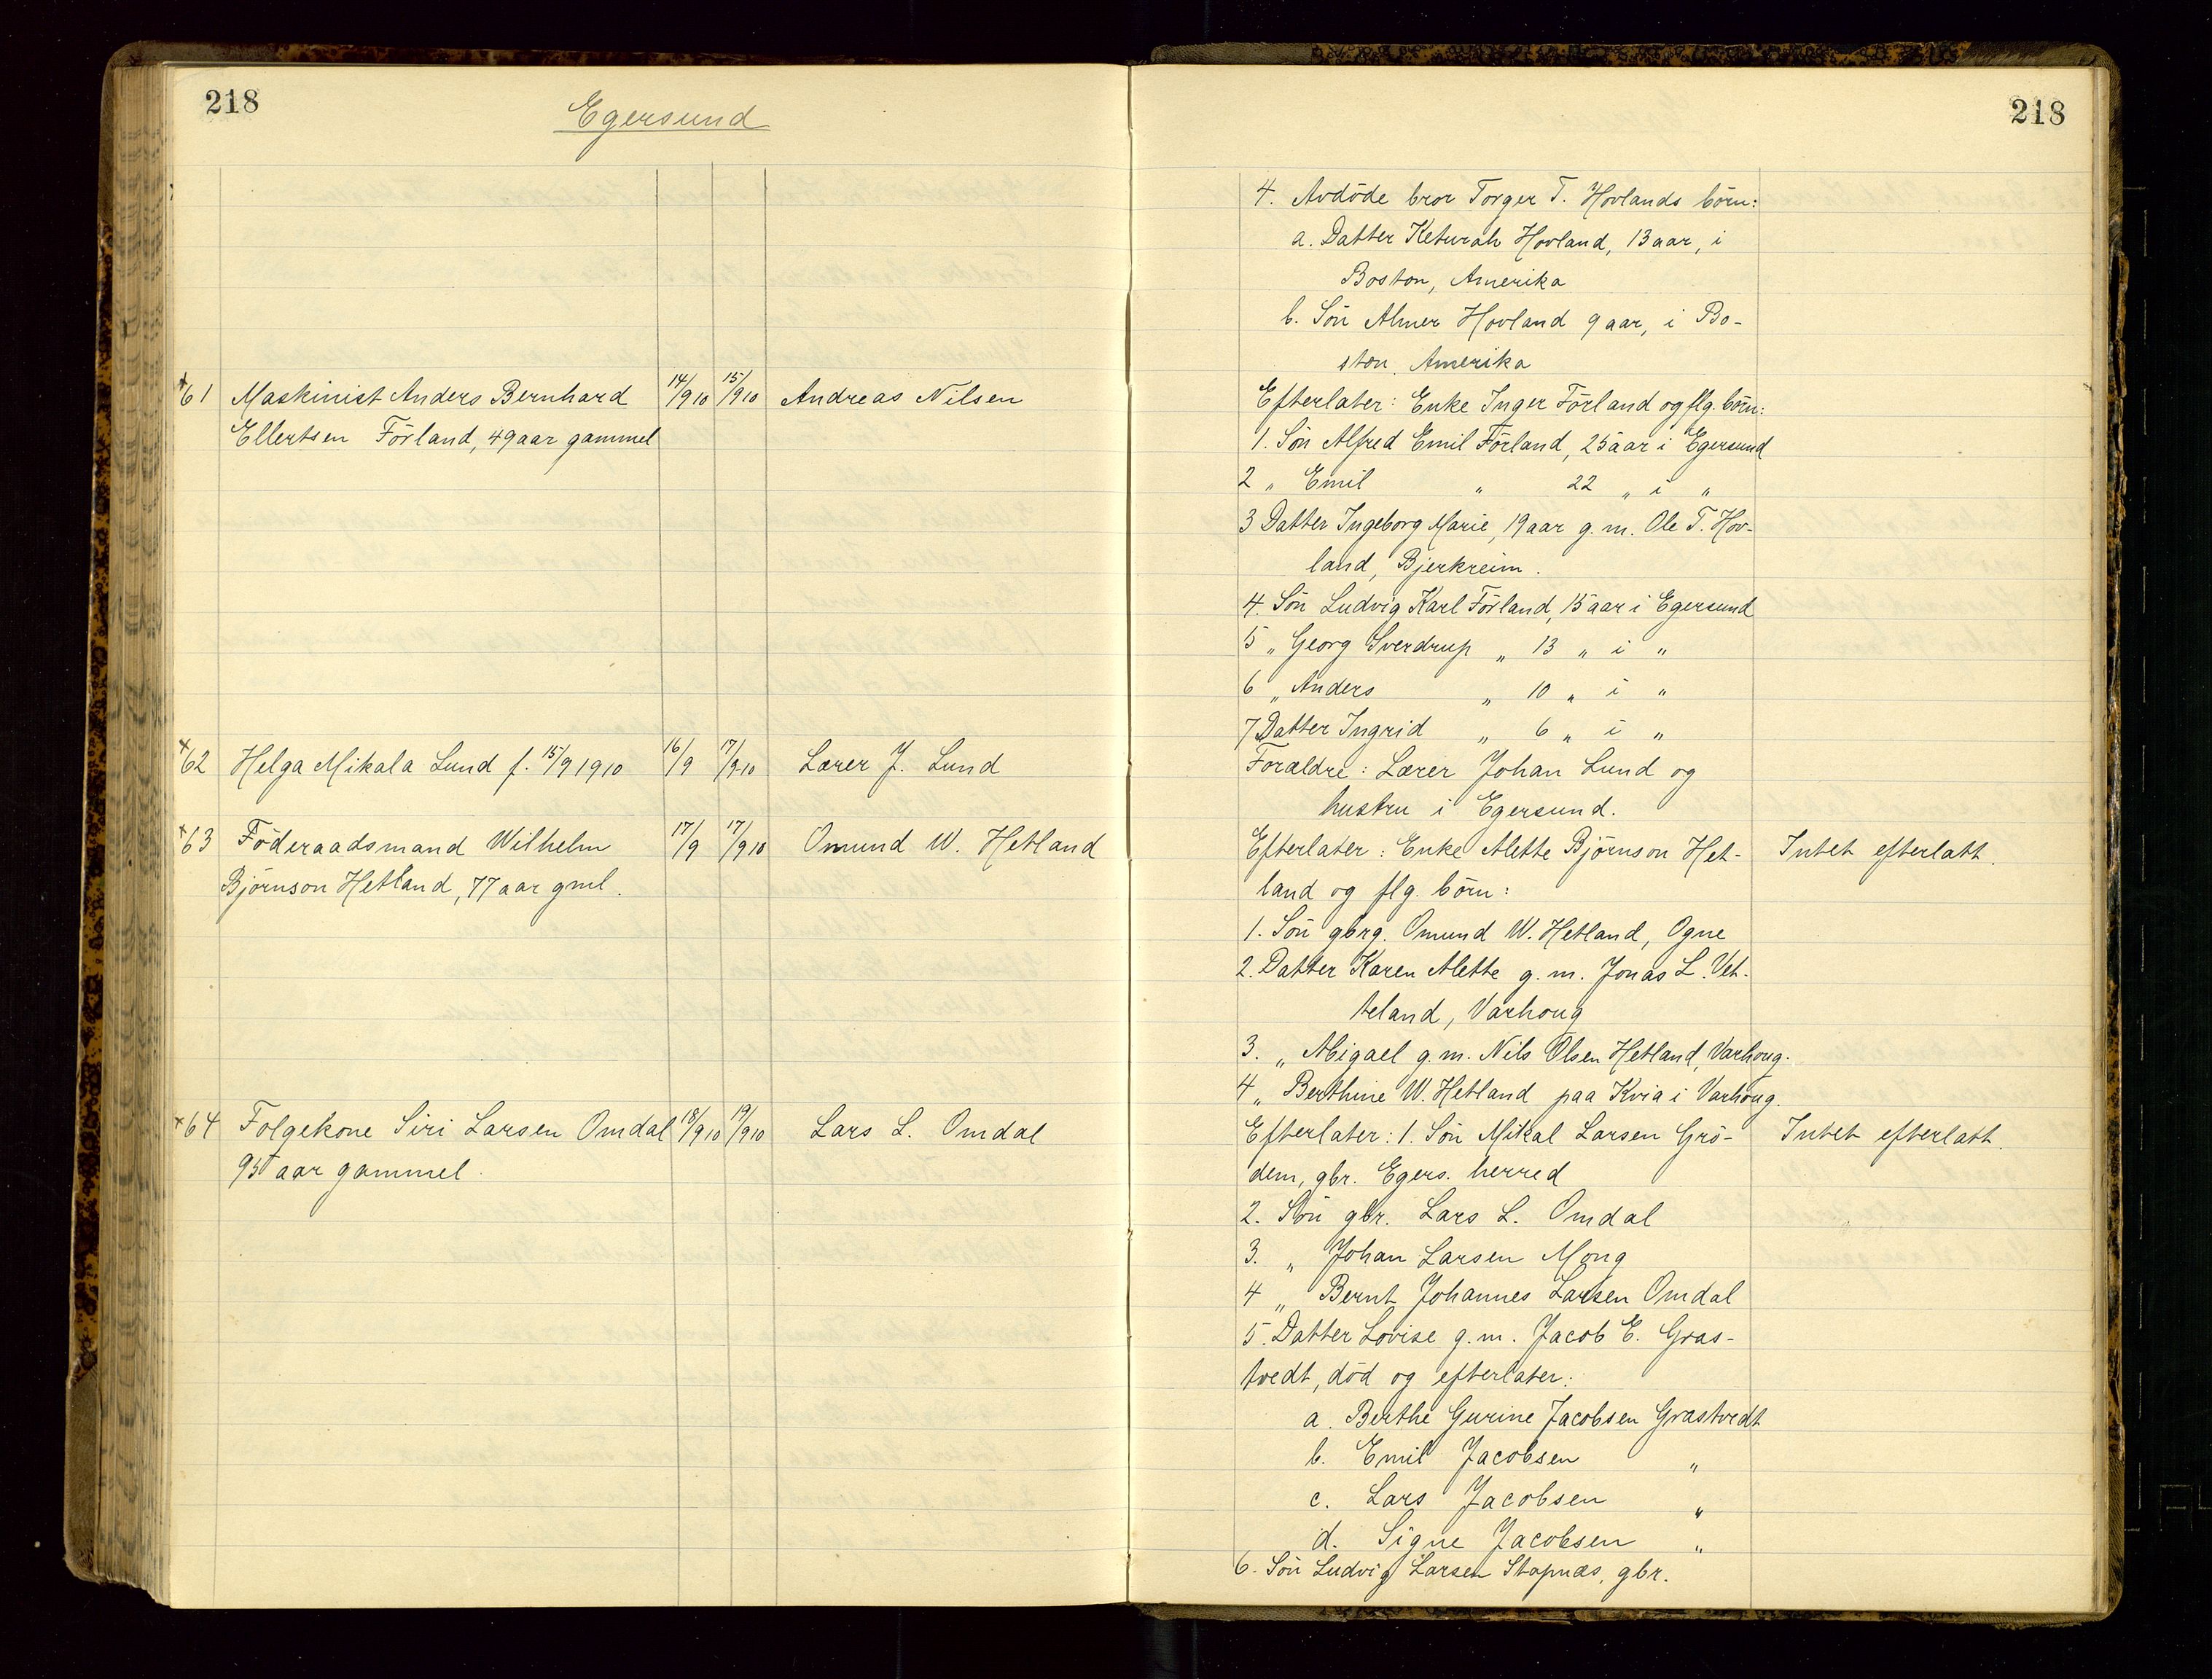 218
Egersund
+61 Maskinist Anders Bernhard 14/9 10 15/9 10 Andreas Nilsen
Ellertsen Förland, 49 aar gammel
+62 Helga Mikala Lund f. 15/9 1910 16/9 17/9 10 Lærer J. Lund
+63 Föderaadsmand Wilhelm 17/9 17/9 10 Omund W. Hetland
Björnson Hetland, 77 aar gml.
+64 Folgekone Siri Larsen Omdal 18/9 10 19/9 10 Lars L. Omdal
95 aar gammel.
218
4. Avdöde bror Torger T. Hovlands börn:
a. Datter Keturah Hovland, 13 aar, i
Boston, Amerika
b. Sön Almer Hovland 9 aar, i Bo-
ston, Amerika
Efterlater: Enke Inger Förland og flg. börn:
1. Sön Alfred Emil Förland, 25 aar i Egersund
2 „ Emil „ 22 „ i „
3 Datter Ingeborg Marie, 19 aar g. m. Ole T. Hov-
land, Bjerkreim.
4. Sön Ludvig Karl Förland, 15 aar i Egersund
5 „ Georg Sverdrup „ 13 „ i „
6 „ Anders „ 10 „ i „
7 Datter Ingrid „ 6 „ i „
Forældre: Lærer Johan Lund og
hustru i Egersund.
Efterlater: Enke Alette Björnson Het- Intet efterlatt.
land og flg. börn:
1. Sön gbrg. Omund W. Hetland, Ogne
2. Datter Karen Alette g. m. Jonas L. Vet-
teland, Varhoug
3. „ Abigael g. m. Nils Olsen Hetland, Varhoug.
4 „ Berthine W. Hetland paa Kvia i Varhoug.
Efterlater: 1. Sön Mikal Larsen Grö- Intet efterlatt.
dem, gbr. Egers. herred
2. Sön gbr. Lars L. Omdal
3. „ Johan Larsen Mong
4 „ Bernt Johannes Larsen Omdal
5. Datter Lovise g. m. Jacob E. Gras-
tvedt, död og efterlater:
a. Berthe Gurine Jacobsen Grastvedt
b. Emil Jacobsen „
c. Lars Jacobsen „
d. Signe Jacobsen „
6. Sön Ludvig Larsen Stapnæs, gbr.